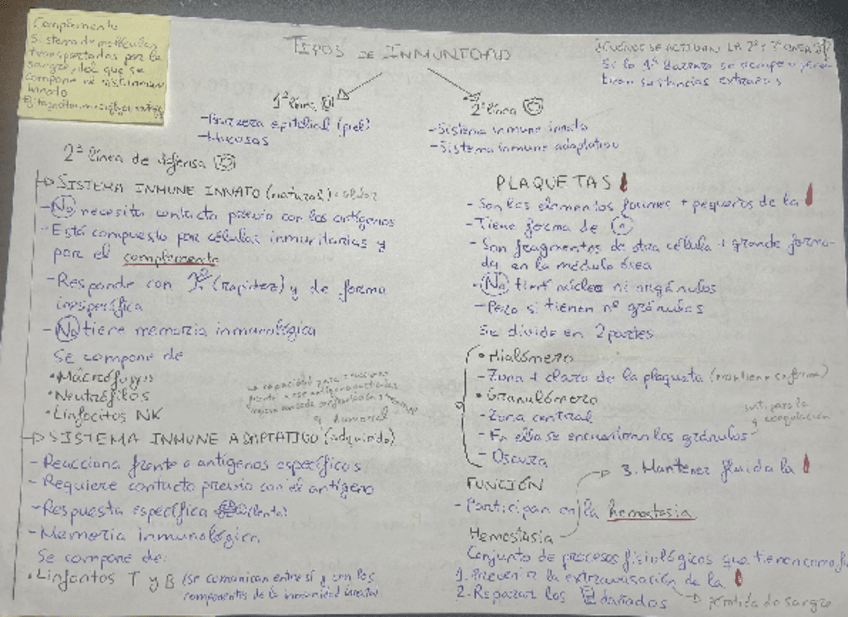 Complemento
Sistema de moléculas
transportadas por la
sangre, del que se
compone el sist. inmun
innato
TIPOS DE INMUNIDAD
¿CUÁNDO SE ACTIVAN LA 2ª Y 3ª LÍNEA?
Si la 1ª barrera se rompe y
sustancias extrañas
1ª línea
- Barrera epitelial (piel)
- Mucosas
2ª línea
- Sistema inmune innato
- Sistema inmune adaptativo
2ª línea de defensa
SISTEMA INMUNE INNATO (natural)
- No necesita contacto previo con los antígenos
- Está compuesto por células inmunitarias y
por el complemento
- Responde con (rapidez) y de forma
inespecífica
- No tiene memoria inmunológica
Se compone de
• Macrófagos
• Neutrófilos
• Linfocitos NK
SISTEMA INMUNE ADAPTATIVO (adquirido)
- Reacciona frente a antígenos específicos
- Requiere contacto previo con el antígeno
- Respuesta específica (lenta)
- Memoria inmunológica
Se compone de:
• Linfocitos T y B (se comunican entre sí y con los
componentes de la inmunidad innata)
PLAQUETAS
- Son los elementos formes + pequeños de la
- Tiene forma de
- Son fragmentos de otra célula + grande forma-
da en la médula ósea
- No tiene núcleo ni orgánulos
- Pero si tienen nº gránulos
Se divide en 2 partes
• Hialómero
- Zona + clara de la plaqueta (mantiene su forma)
• Granulómero
- Zona central
- En ella se encuentran los gránulos
para la
coagulación
- Oscura
3. Mantener fluida la
FUNCIÓN
- Participan en la hemostasia
Hemostasia
Conjunto de procesos fisiológicos que tienen como
1. Prevenir la extravasación de la
2. Reparar los dañados
pérdida de sangre